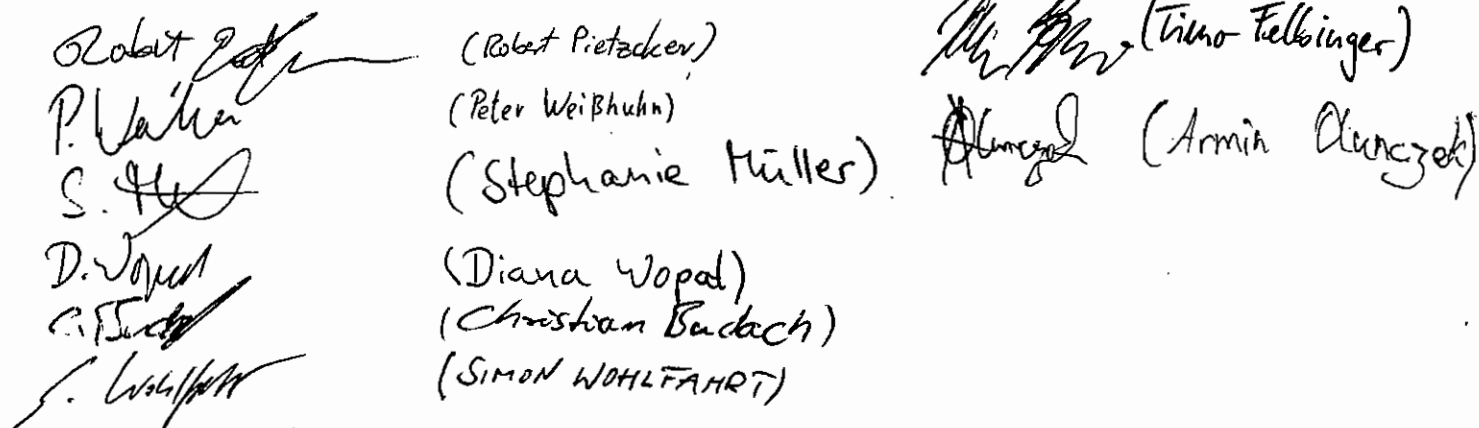 Robert (Robert Pietzcker)
P. (Peter Weißhuhn)
S. (Stephanie Müller)
D. Wopat (Diana Wopat)
(Christian Budach)
S. Wohlfahrt (SIMON WOHLFAHRT)
(Timo Felbinger)
(Armin Olunczek)